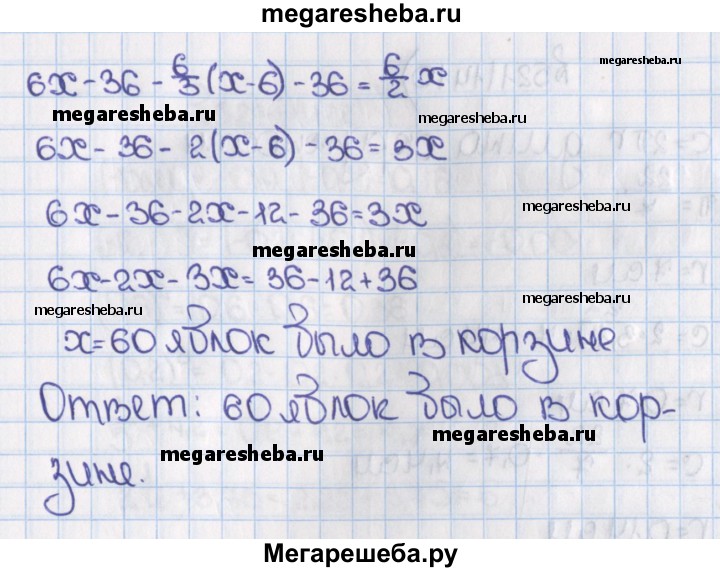 megaresheba.ru
6x - 36 - 6/3 (x-6) - 36 = 6/2 x
megaresheba.ru
megaresheba.ru
megaresheba.ru
6x - 36 - 2(x-6) - 36 = 3x
megaresheba.ru
6x - 36 - 2x - 12 - 36 = 3x
megaresheba.ru
6x - 2x - 3x = 36 - 12 + 36
megaresheba.ru
megaresheba.ru
x = 60 яблок было в корзине
Ответ: 60 яблок было в кор-
megaresheba.ru
megaresheba.ru
зине.
Мегарешеба.ру